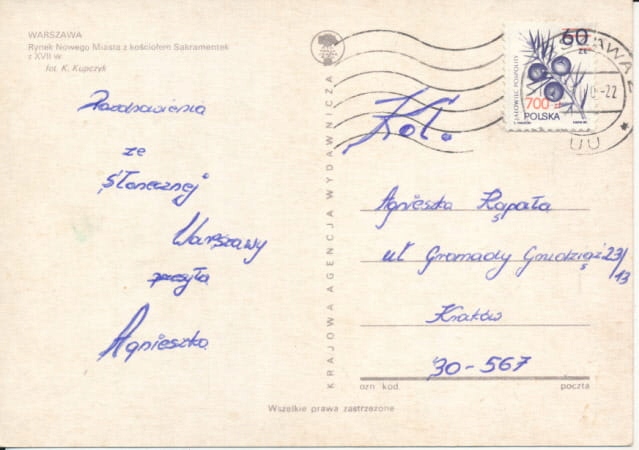 WARSZAWA
Rynek Nowego Miasta z kościołem Sakramentek
z XVII w.
fot. K. Kupczyk
Pozdrowienia
ze
"Słonecznej"
Warszawy
przesyła
Agnieszka
KRAJOWA AGENCJA WYDAWNICZA
60
ZŁ
JAŁOWIEC POSPOLITY
700 zł
POLSKA
-22
UU
Kol.
Agnieszka Rąpała
ul Gromady Grudziąż 23/13
Kraków
30-567
ozn kod. poczta
Wszelkie prawa zastrzeżone